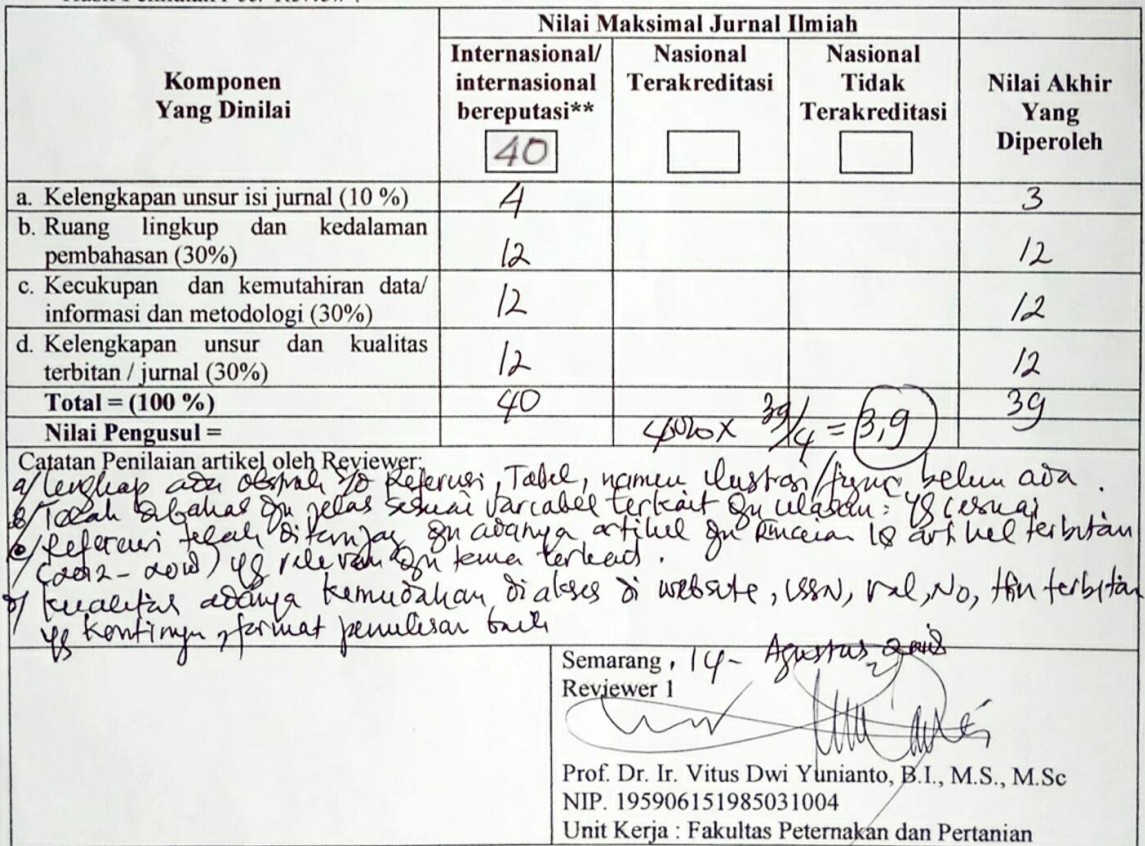 Nilai Maksimal Jurnal Ilmiah
Komponen Yang Dinilai
Internasional/ internasional bereputasi**
Nasional Terakreditasi
Nasional Tidak Terakreditasi
Nilai Akhir Yang Diperoleh
40
a. Kelengkapan unsur isi jurnal (10 %) 4 3
b. Ruang lingkup dan kedalaman
pembahasan (30%) 12 12
c. Kecukupan dan kemutahiran data/
informasi dan metodologi (30%) 12 12
d. Kelengkapan unsur dan kualitas
terbitan / jurnal (30%) 12 12
Total = (100 %) 40 39
Nilai Pengusul = 40% x 39/4 = 3,9
Catatan Penilaian artikel oleh Reviewer:
a/ lengkap ada Referensi, Tabel, namun ilustrasi/figur belum ada.
b/ Telah dibahas dgn jelas sesuai variabel terkait dgn ulasan yg sesuai
c/ Referensi telah dgn adanya artikel dgn rincian artikel terbitan
yg relevan dgn tema terkait.
d/ kualitas adanya kemudahan diakses di website, ISSN, vol, No, thn terbitan
yg kontinyu, format penulisan baik
Semarang, 14 - Agustus
Reviewer 1
Prof. Dr. Ir. Vitus Dwi Yunianto, B.I., M.S., M.Sc
NIP. 195906151985031004
Unit Kerja : Fakultas Peternakan dan Pertanian